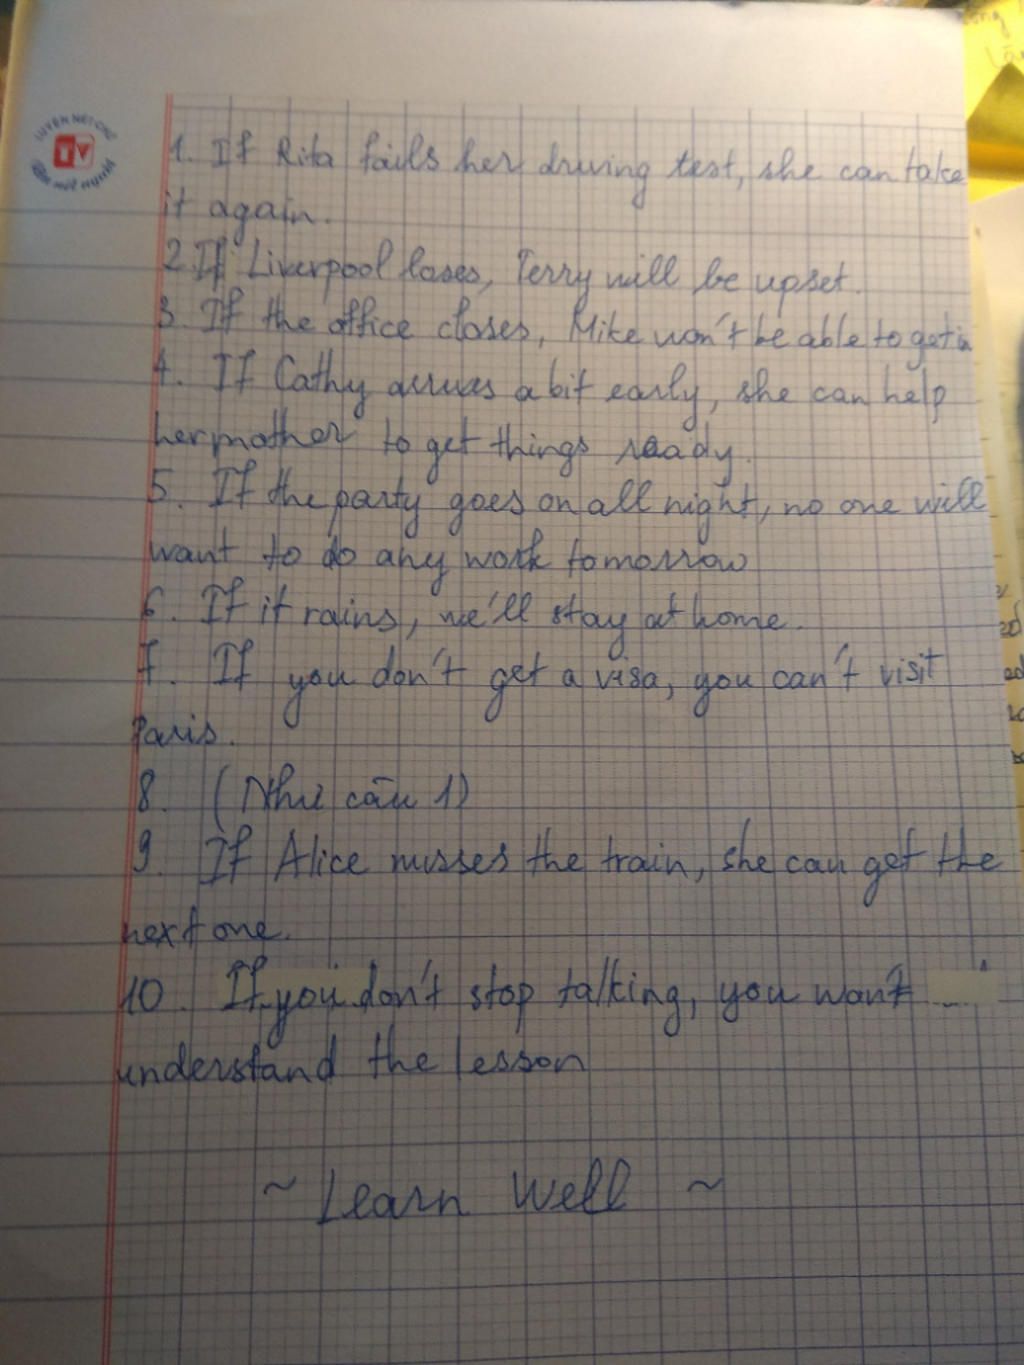 LUYỆN NÉT CHỮ
TV
Rèn nết người
1. If Rita fails her driving test, she can take
it again.
2. If Liverpool loses, Terry will be upset.
3. If the office closes, Mike won't be able to get in
4. If Cathy arrives a bit early, she can help
her mother to get things ready.
5. If the party goes on all night, no one will
want to do any work tomorrow
6. If it rains, we'll stay at home.
7. If you don't get a visa, you can't visit
Paris.
8. (Như câu 1)
9. If Alice misses the train, she can get the
next one.
10. If you don't stop talking, you won't
understand the lesson
~ Learn Well ~